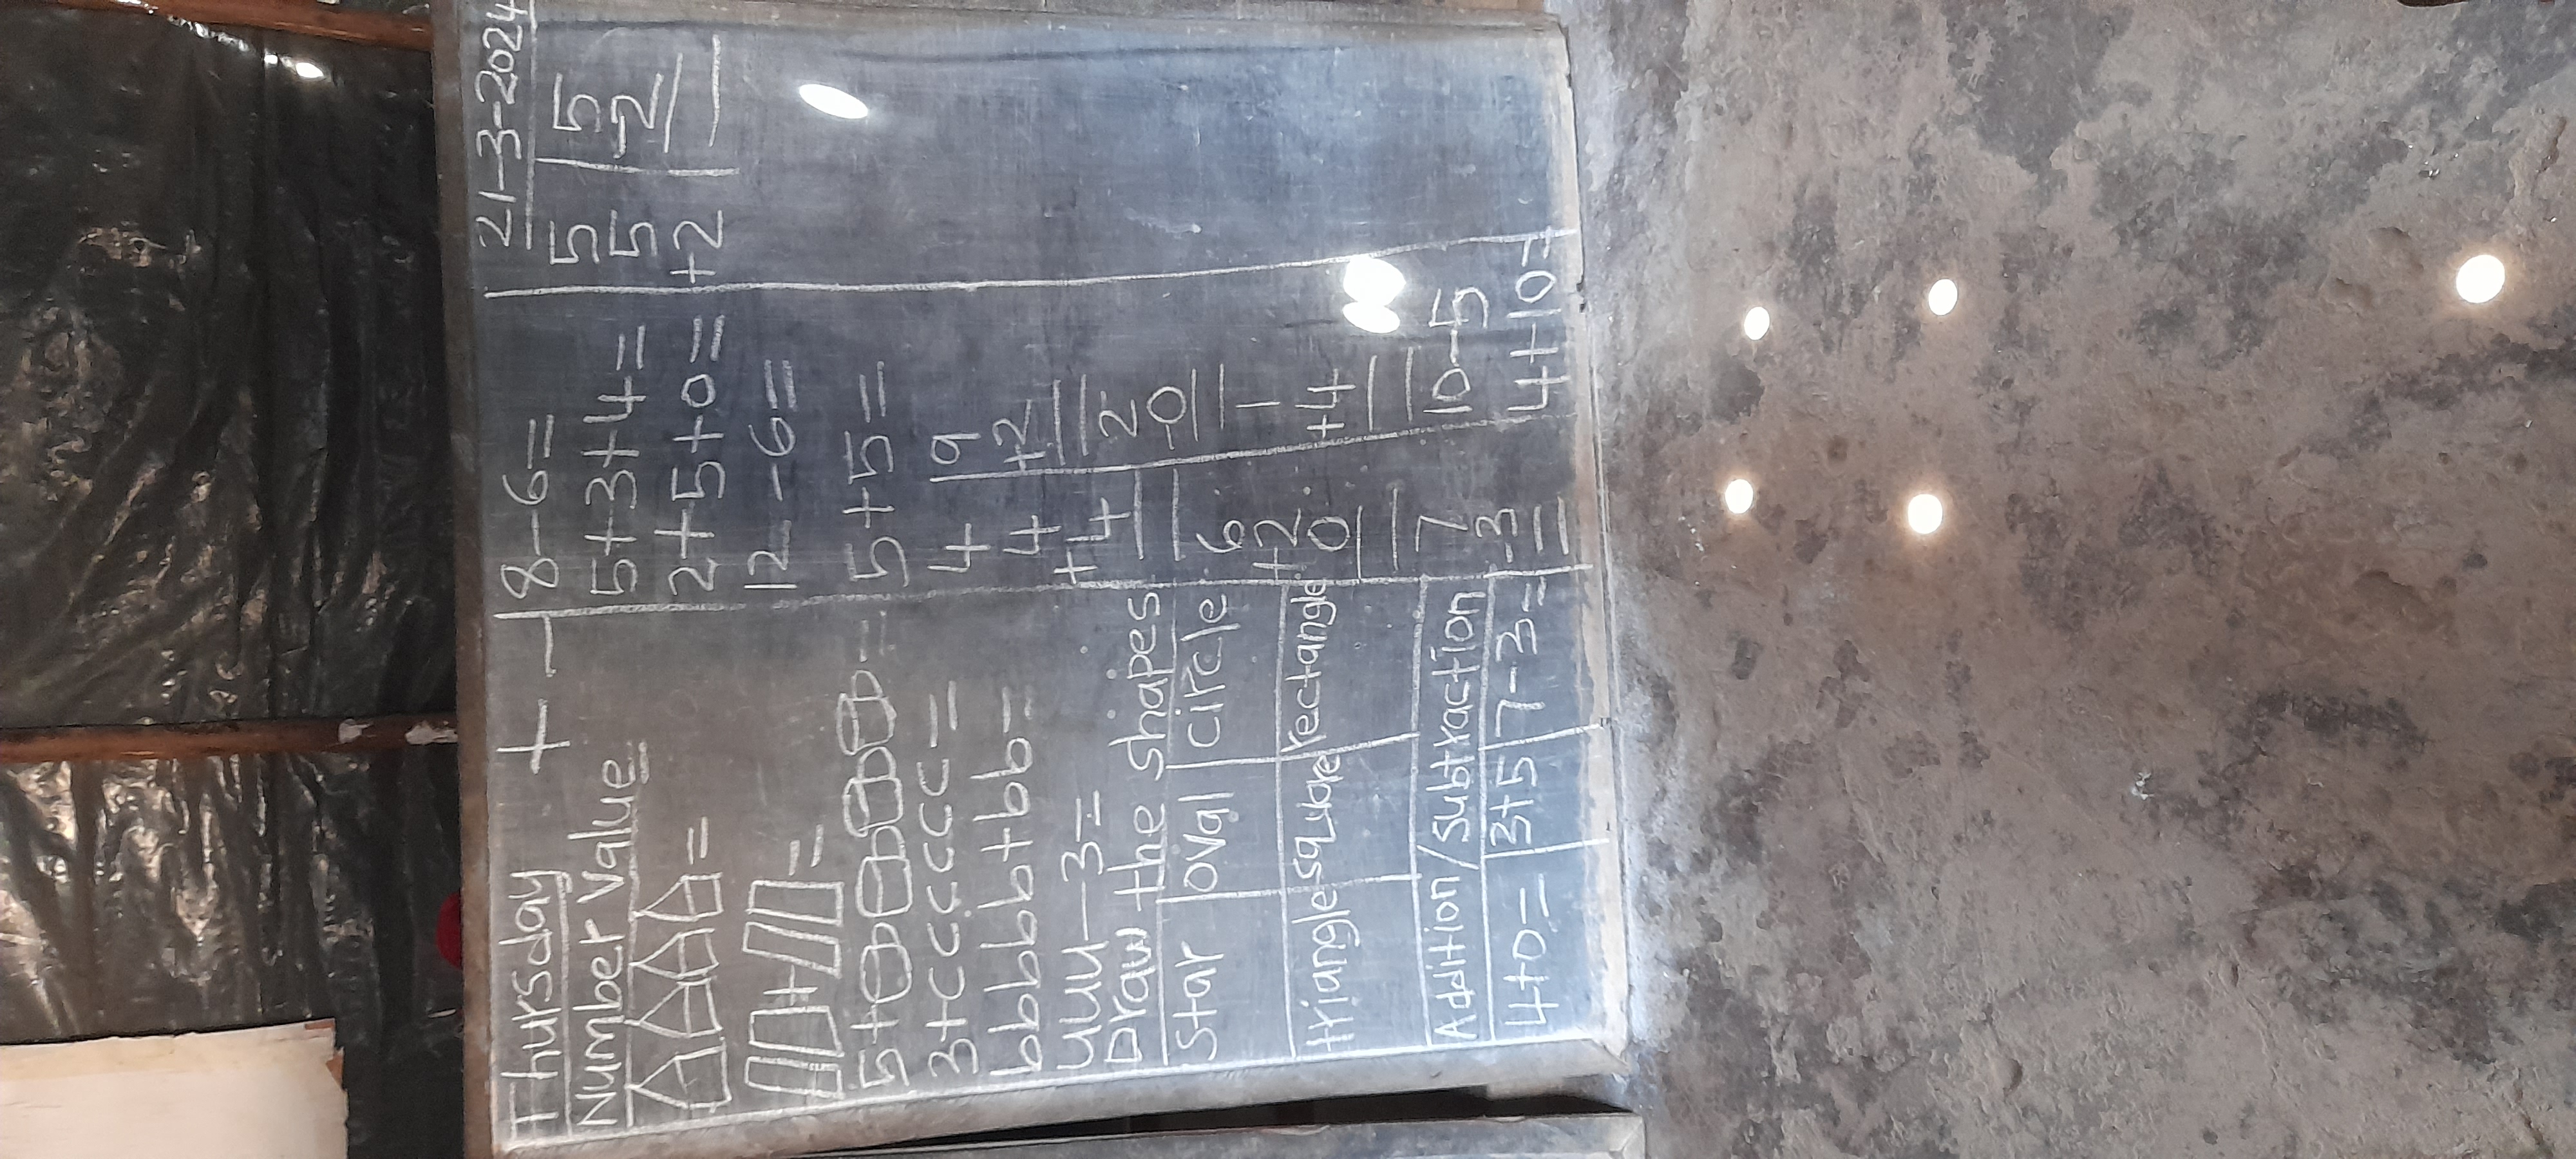 Thursday + - 21-3-2024
Number Value
=
+ =
5+ =
3+cccccc=
bbbbbb+bb=
uuu-3=
Draw the shapes
star oval circle
triangle square rectangle
Addition/subtraction
4+0= 3+5 7-3=
8-6=
5+3+4=
2+5+0=
12-6=
5+5=
4
4
+4
6
+2
0
7
-3
9
+2
2
-0
1
+4
10-5
4+10=
5
5
+2
5
-2